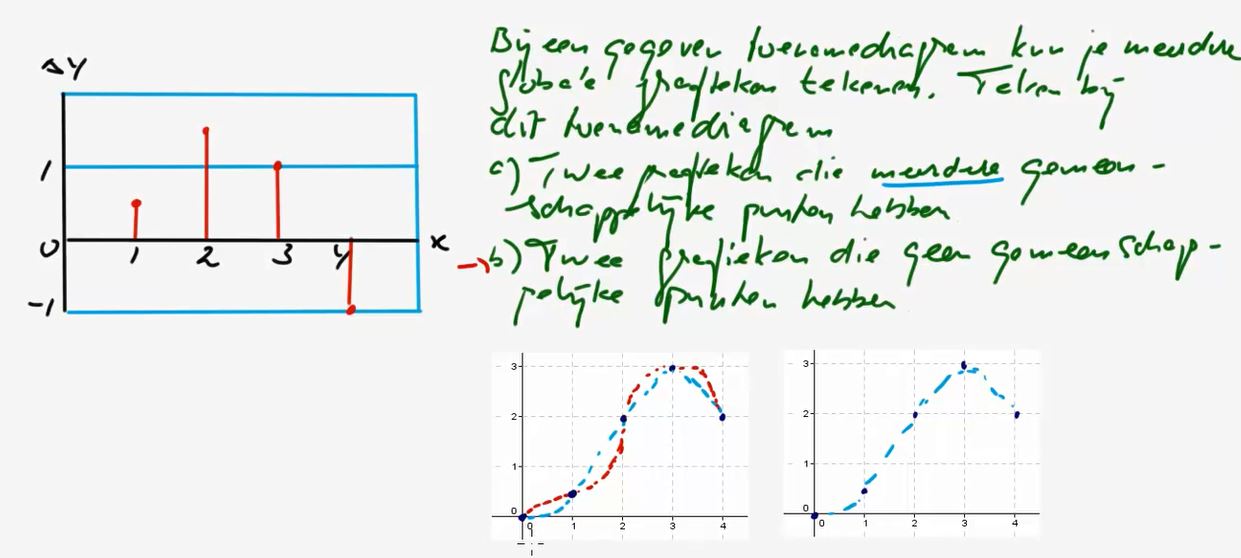 Δy
1
0
-1
1 2 3 4 x
Bij een gegeven toenamediagram kun je meerdere
globale grafieken tekenen. Teken bij
dit toenamediagram
a) Twee grafieken die meerdere gemeen-
schappelijke punten hebben
b) Twee grafieken die geen gemeenschap-
pelijke punten hebben
3
2
1
0
0 1 2 3 4
3
2
1
0
0 1 2 3 4